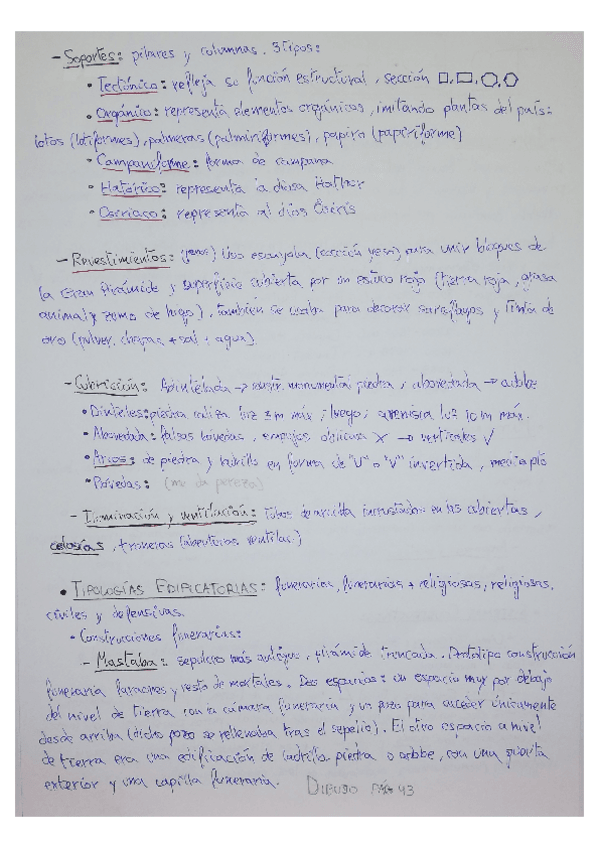 - Soportes: pilares y columnas. 3 tipos:
• Tectónico: refleja su función estructural, sección
• Orgánico: representa elementos orgánicos, imitando plantas del país:
lotos (lotiformes), palmeras (palmiriformes), papiro (papiriforme)
• Campaniforme: forma de campana
• Hatórico: representa la diosa Hathor
• Osiriaco: representa al dios Osiris
- Revestimientos: yesos) Uso escayola (cocción yeso) para unir bloques de
la Gran Pirámide y superficie cubierta por un estuco rojo (tierra roja, grasa
animal y zumo de higo), también se usaba para decorar surcos y lámina de
oro (pulver. chapas + sal + agua).
- Cubrición: Adintelada → constr. monumental piedra, abovedada → adobe
• Dinteles: piedra caliza luz 3 m máx, luego, arenisca luz 10 m máx.
• Abovedada: falsas bóvedas, empujes oblicuos X → verticales ✓
• Arcos: de piedra y ladrillo en forma de "U" o "V" invertida, medio pto
• Bóvedas: (me da pereza)
- Iluminación y ventilación: tubos de arcilla incrustados en las cubiertas,
celosías, troneras (aberturas ventilac.)
• TIPOLOGÍAS EDIFICATORIAS: funerarias, funerarias + religiosas, religiosas,
civiles y defensivas.
• Construcciones funerarias:
- Mastaba: sepulcro más antiguo, pirámide truncada. Antotipo construcción
funeraria faraones y resto de mortales. Dos espacios: un espacio muy por debajo
del nivel de tierra con la cámara funeraria y un pozo para acceder únicamente
desde arriba (dicho pozo se rellenaba tras el sepelio). El otro espacio a nivel
de tierra era una edificación de ladrillo piedra o adobe, con una puerta
exterior y una capilla funeraria. DIBUJO PÁG 43